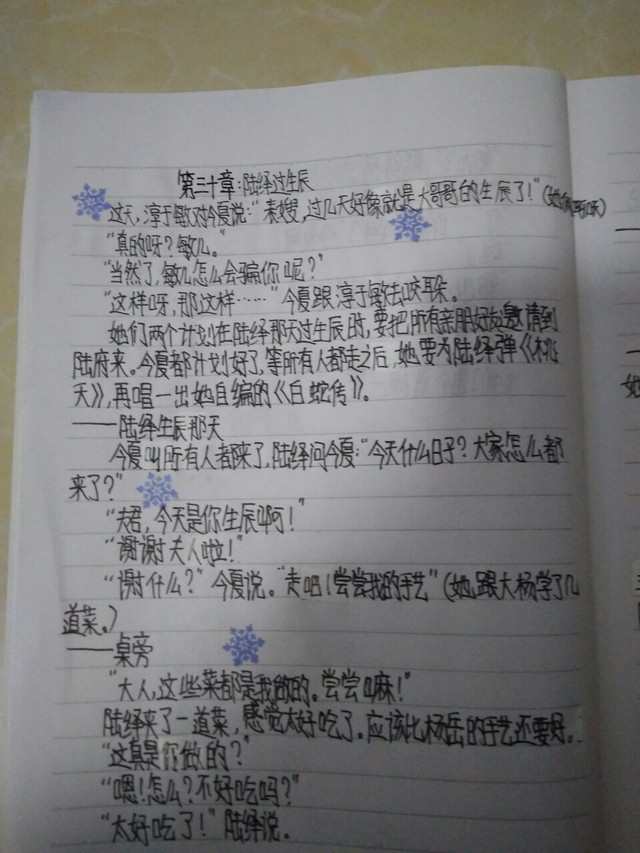 第三十章:陆绎过生辰
这天,淳于敏对今夏说:“袁嫂,过几天好像就是大哥哥的生辰了!”(
“真的呀?敏儿。”
“当然了,敏儿怎么会骗你呢?”
“这样呀,那这样……”今夏跟淳于敏去咬耳朵。
她们两个计划在陆绎那天过生辰时,要把所有亲朋好友邀请到
陆府来。今夏都计划好了,等所有人都走之后,她要为陆绎弹《桃
夭》,再唱一出她自编的《白蛇传》。
——陆绎生辰那天
今夏叫所有人都来了,陆绎问今夏:“今天什么日子?大家怎么都
来了?”
“夫君,今天是你生辰啊!”
“谢谢夫人啦!”
“谢什么?”今夏说。“走吧!尝尝我的手艺”(她跟大杨学了几
道菜。)
——桌旁
“大人,这些菜都是我做的。尝尝嘛!”
陆绎夹了一道菜,感觉太好吃了。应该比杨岳的手艺还要好。
“这真是你做的?”
“嗯!怎么?不好吃吗?”
“太好吃了!”陆绎说。